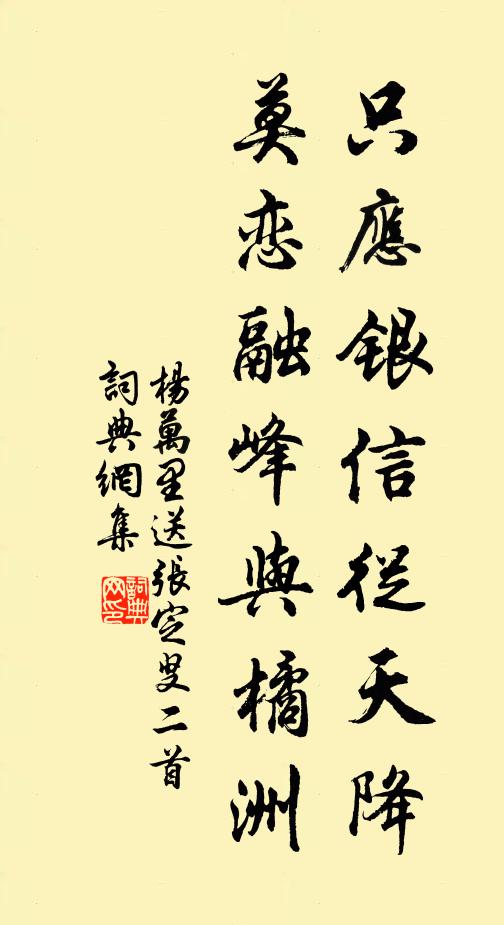 只應銀信從天降
莫恋融峰與橘洲
楊萬里送張定叟二首
詞典網集
詞典网印